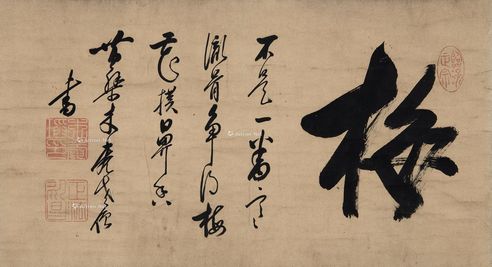 梅
不是一番寒
徹骨爭得梅
花撲鼻香
黃檗木菴
書